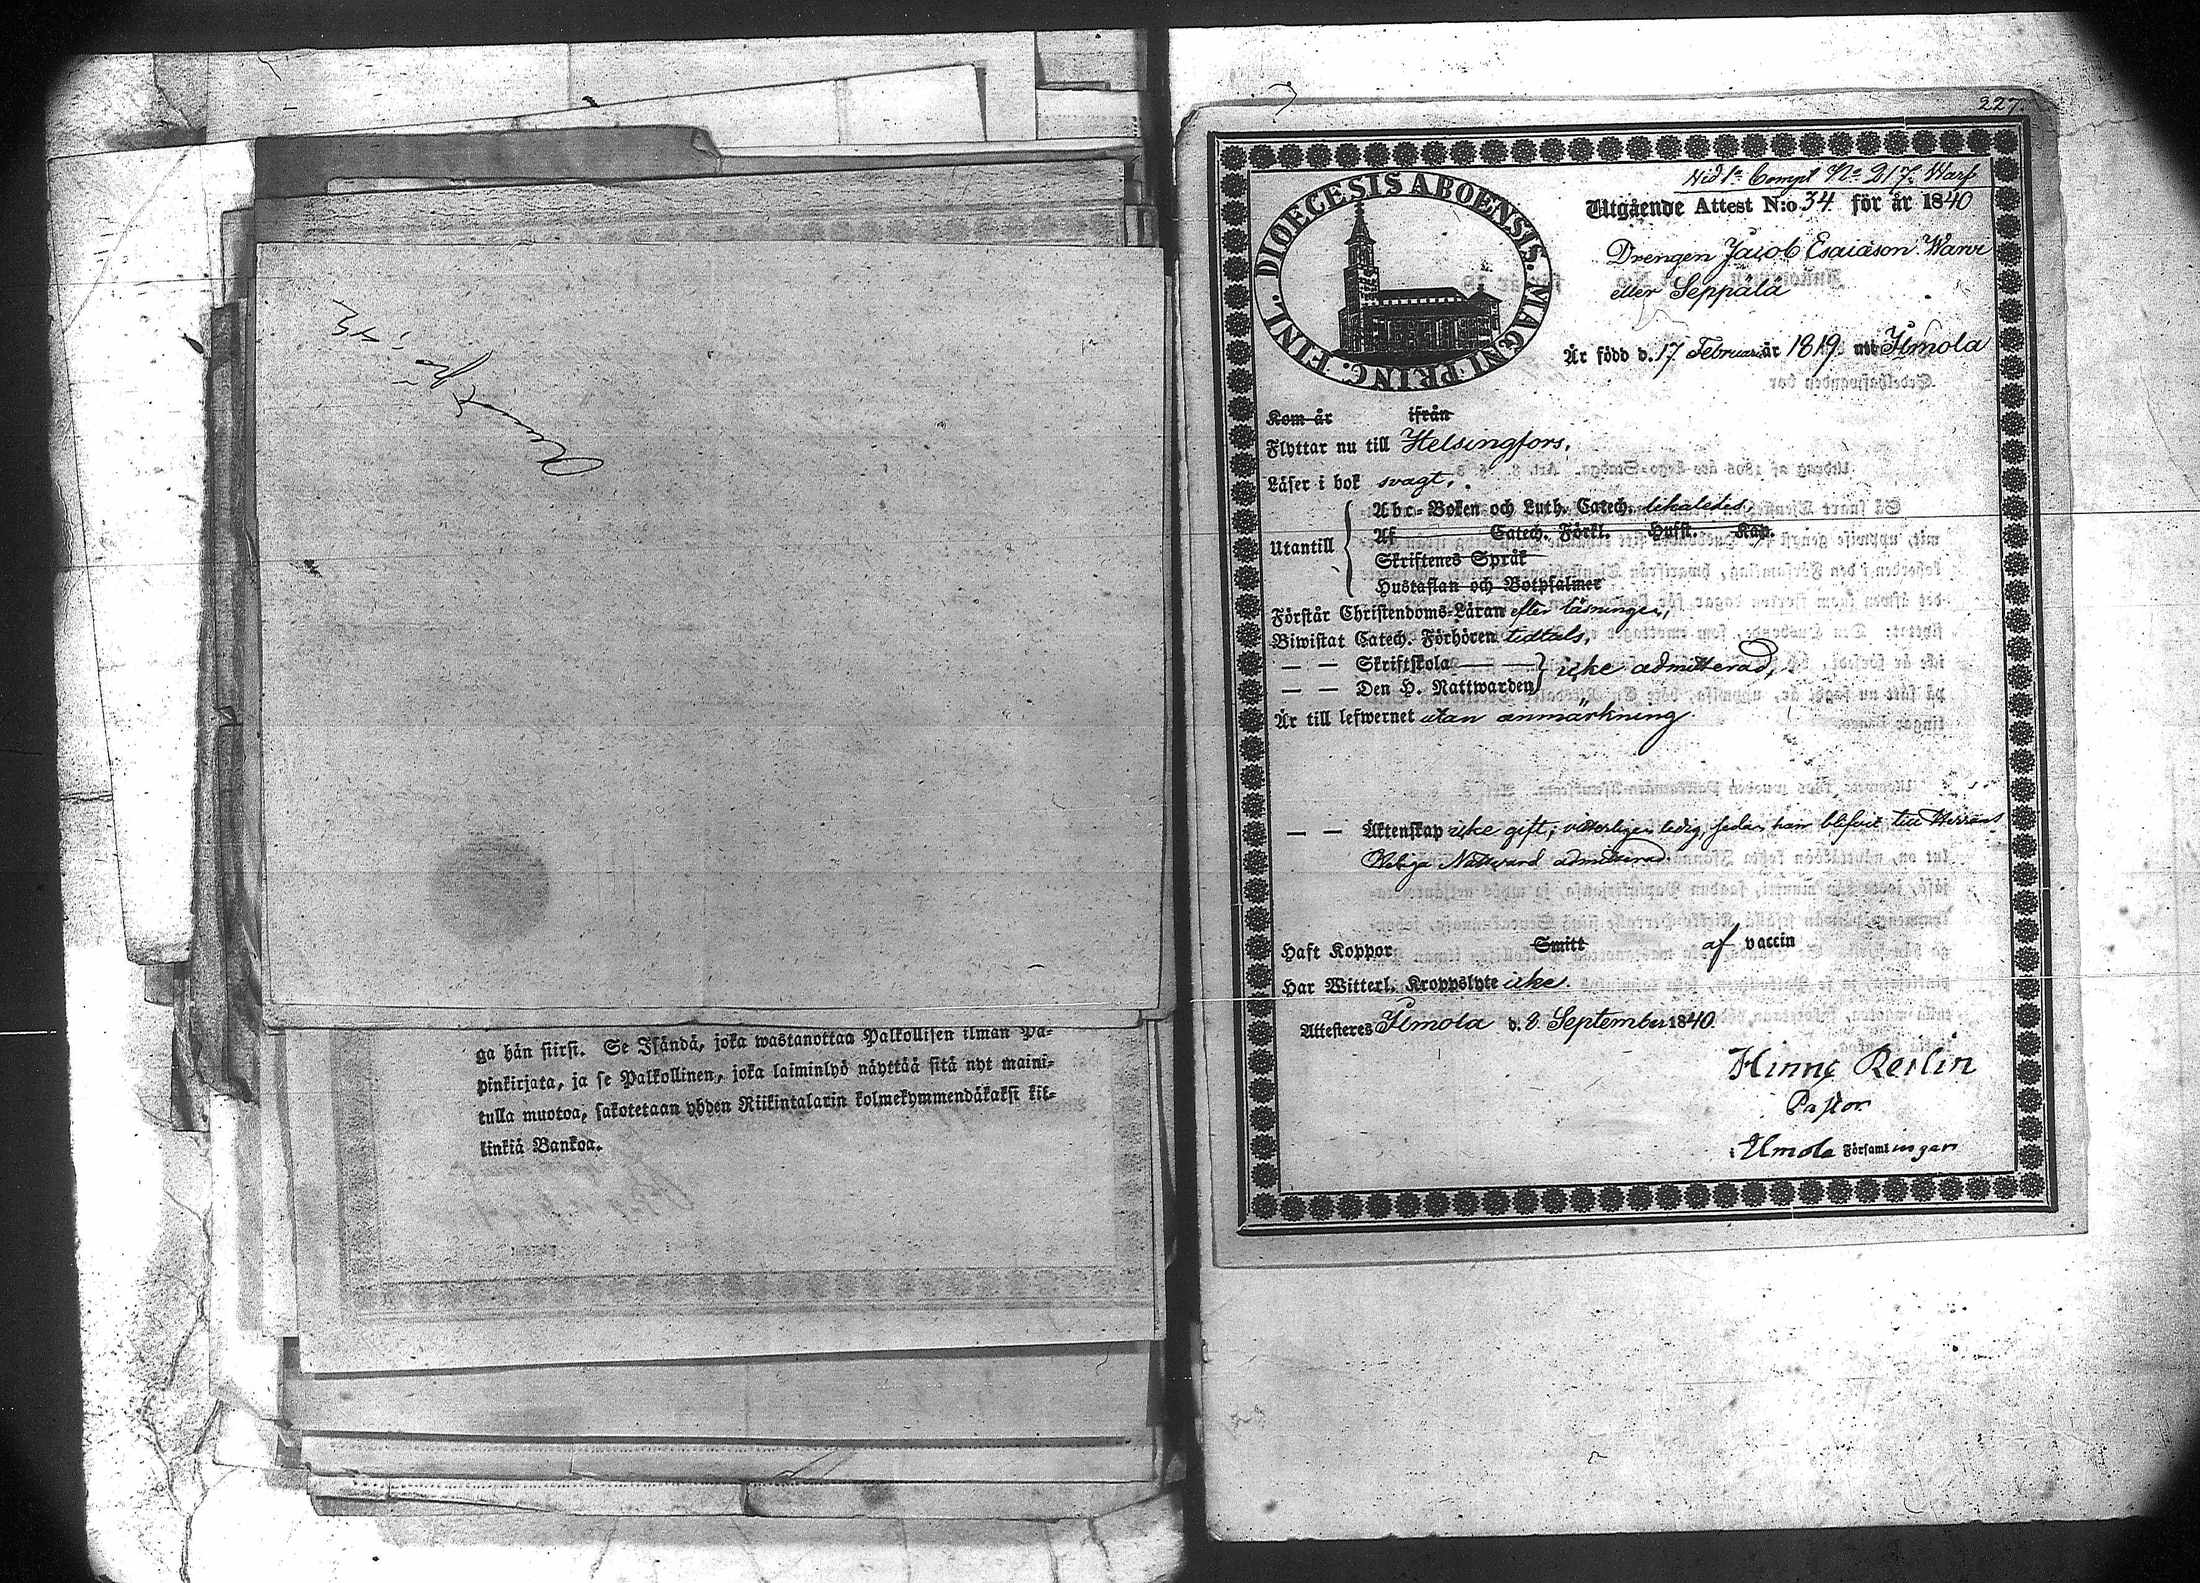 ga hän siirsi. Se Isändä, joka wastanottaa Palkollisen ilman Pa-
pinkirjata, ja se Palkollinen, joka laiminlyö näyttää sitä nyt maini-
tulla muotoa, sakotetaan yhden Riikintalarin kolmekymmendäkaksi kil-
linkiä Bankoa.
227.
Compt No 217.
DIOECESIS ABOENSIS. MAGNI PRINC. FINL.
Utgående Attest N:o 34 för år 1840
Drengen Jacob Esaiason Warve
eller Seppälä
Är född d. 17 Februari år 1819 uti Ilmola
Kom år ifrån
Flyttar nu till Helsingfors,
Läser i bok svagt,
Utantill
Abc-Boken och Luth. Catech. likaledes,
Af Catech. Förkl. Husst. Kap.
Skriftenes Språk
Hustaflan och Botpsalmer
Förstår Christendoms-Läran efter läsningen,
Biwistat Catech. Förhören tidtals,
— — Skriftskola — — icke admitterad,
— — Den H. Nattwarden
Är till lefwernet utan anmärkning
— — Äktenskap icke gift, vitterligen ledig, sedan han blifvit till Herrans
Heliga Nattvard admitterad
Haft Koppor Smitt af vaccin
Har Witterl. Kroppslyte icke.
Attesteras Ilmola d. 8. September 1840.
Pastor
i Ilmola Församlingen